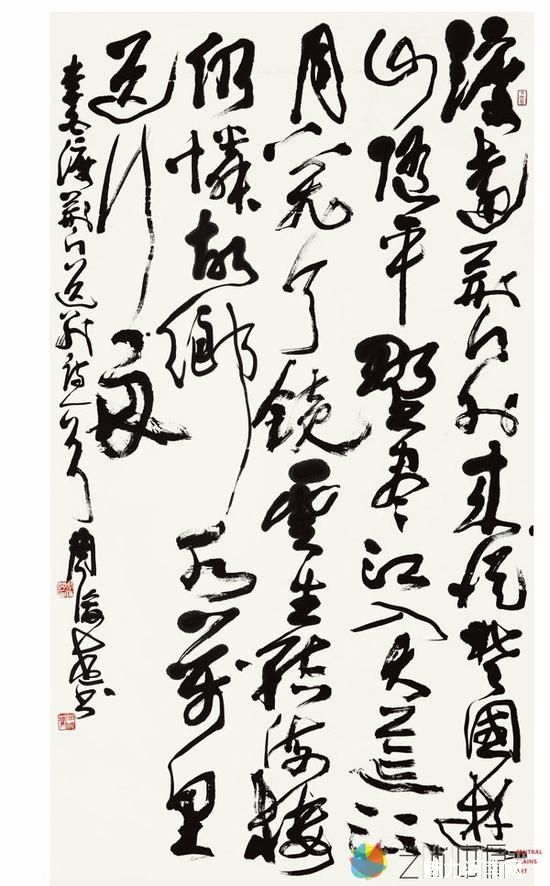 渡遠荆门外来從楚國遊
山隨平野盡江入大荒流
月下飛天鏡雲生結海樓
仍憐故鄉水萬里
送行舟
李白渡荆门送别诗一首 周俊杰书
CENTRAL
PLAINS
ART